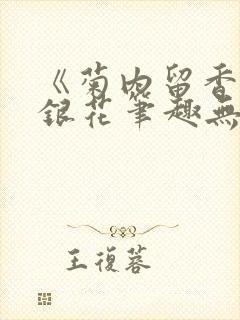 《菊内留香
銀花筆趣無
王復蓉